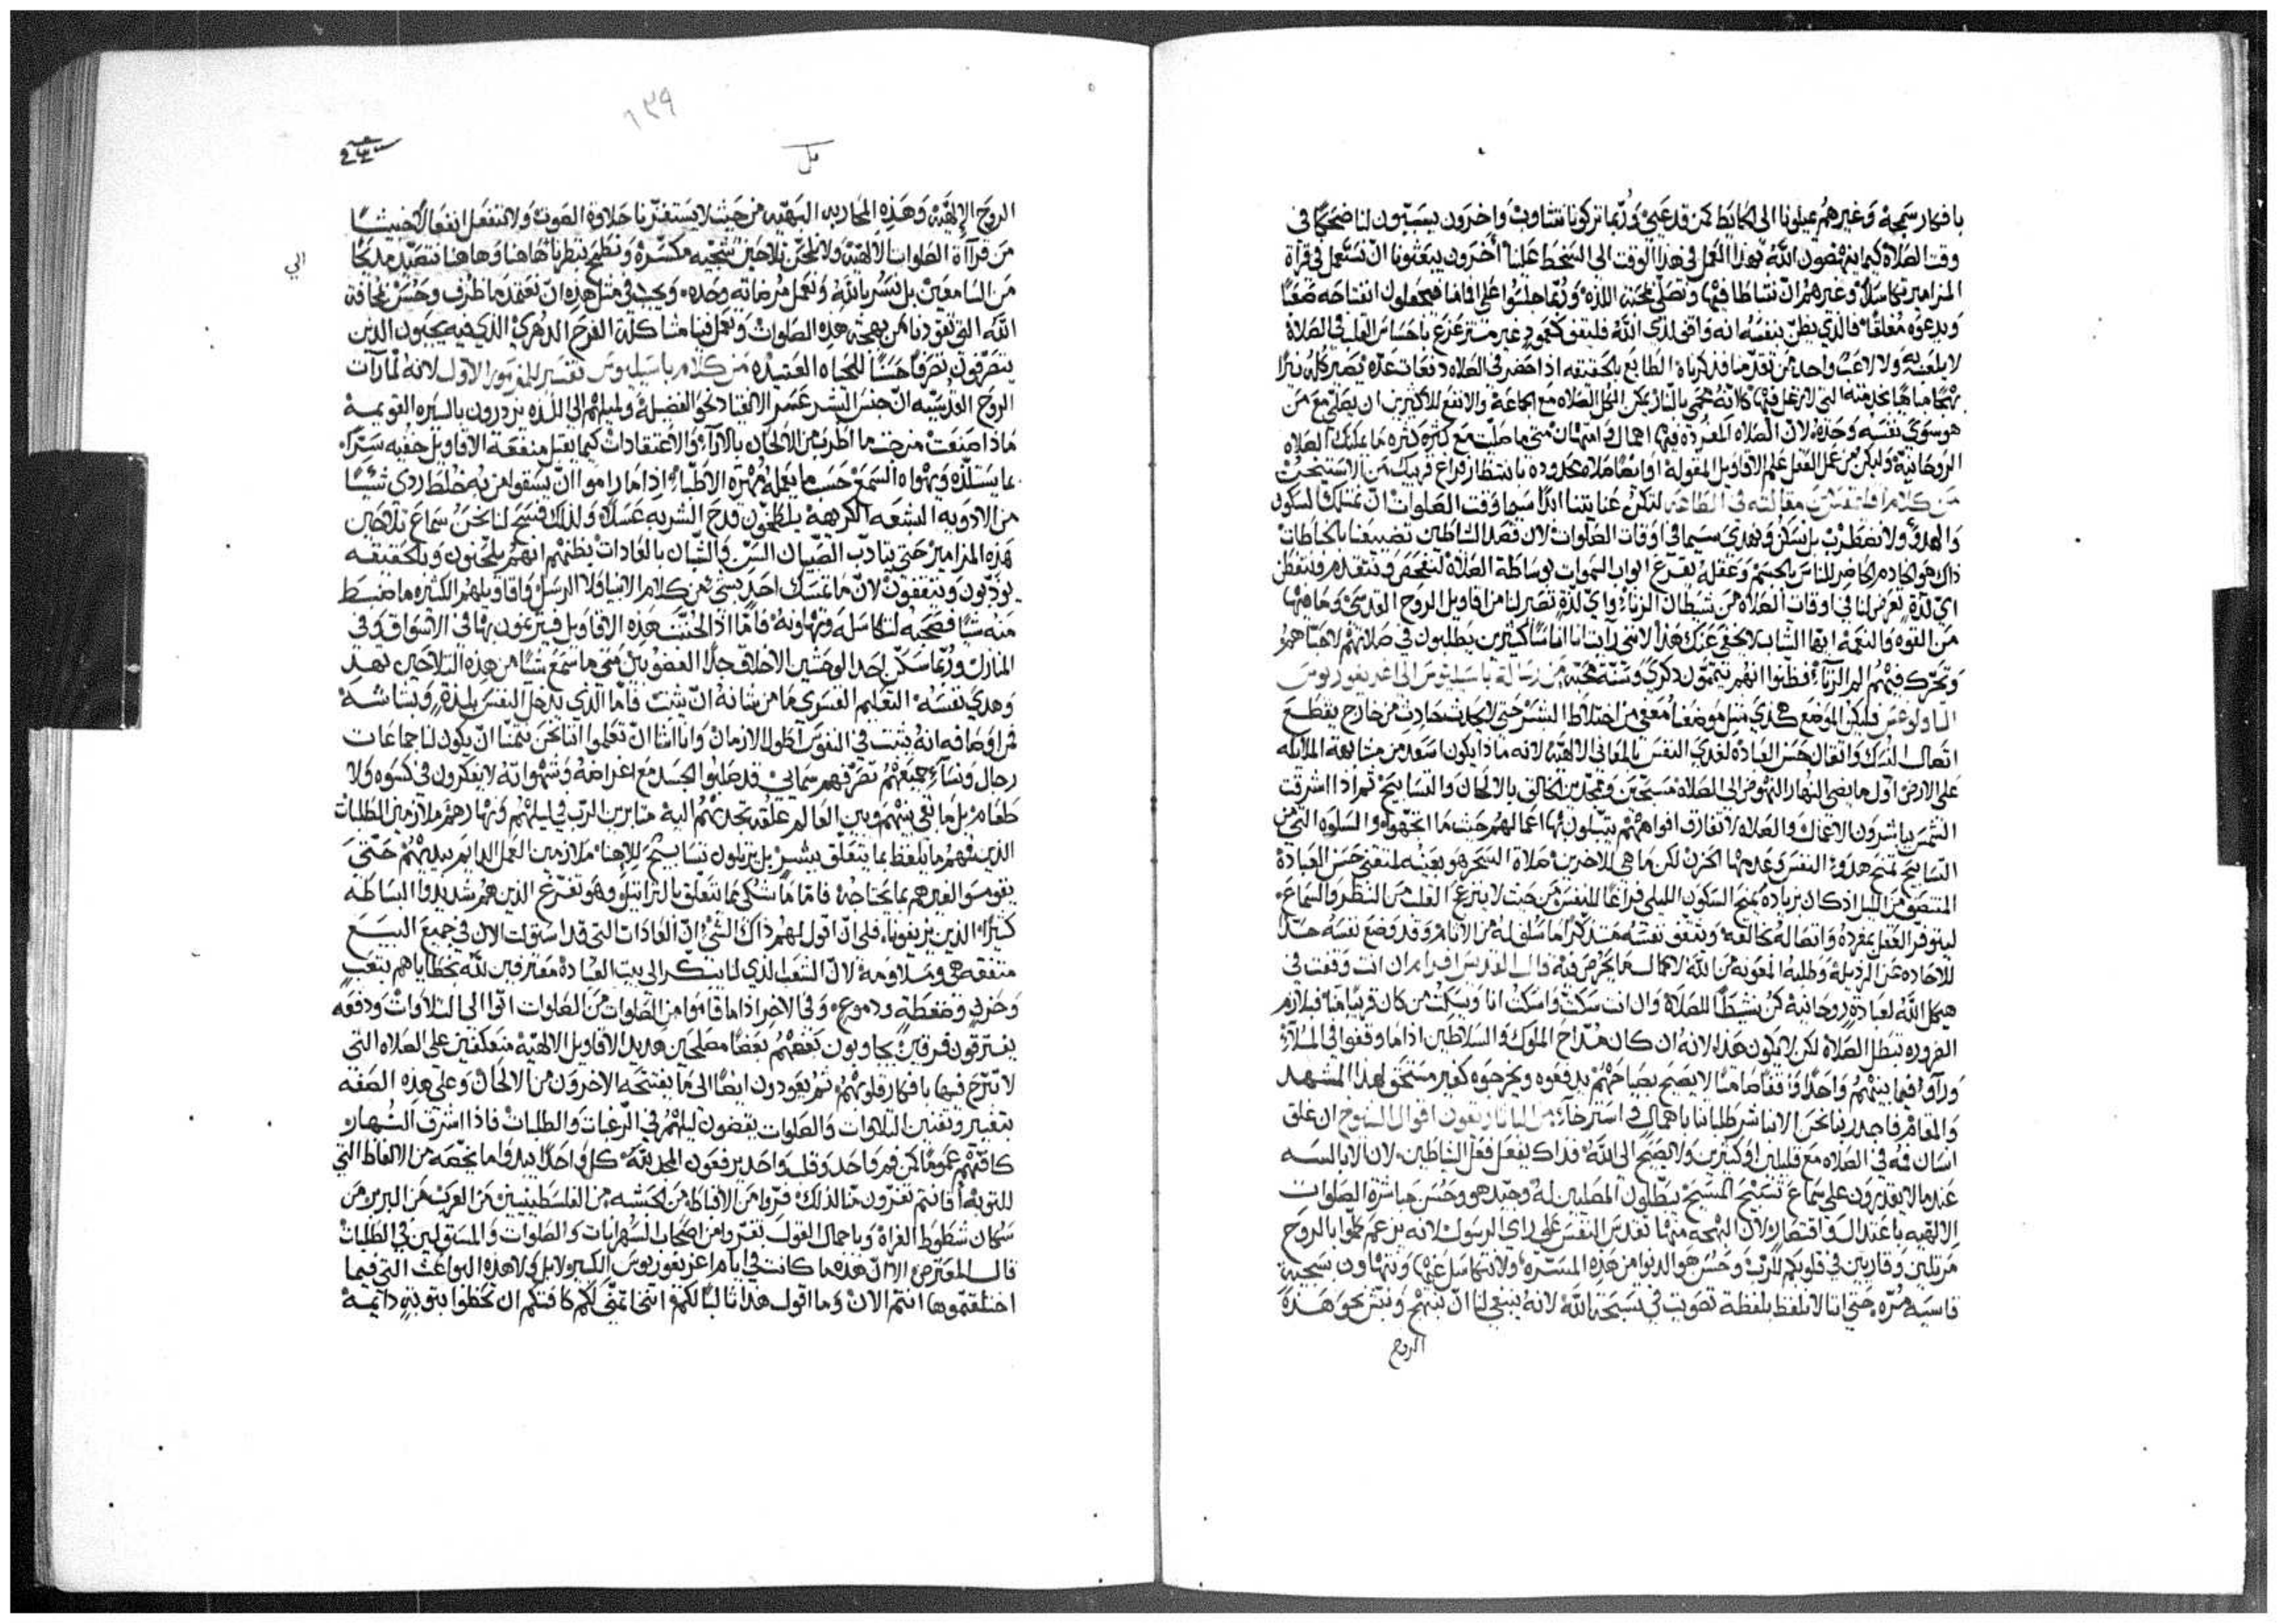 بافكار سمجة وغيرهم يميلونا الى الحايط كمن قد عيي وربما تركونا نتثاوب واخرون يسببون لنا ضحكا في
وقت الصلاة كيما ينهضون الله بهذا العمل في هذا الوقت الى السخط علينا اخرون يبعثونا ان نستعمل في قرآة
المزامير تكاسلا وغيرهم ان نشاطا فيها ونصلي بمحبة اللذة وربما جلسوا على افامنا فيجعلون افتتاحه صعبا
ويدعوه مغلقا فالذي يظن بنفسه انه واقف لدى الله فليقف كعمود غير متزعزع باحساس القلب في الصلاة
لا يلعب به ولا لاعب واحد ممن تقدمنا فذكرناه الطايع بالحقيقه اذا حضر في الصلاه دفعات عده يصير كله نيرا
هو سوى نفسه وحده لان الصلاه المفرده فيها اهمال وامتهان متى ما صليت مع كثره كثيره ما يمكنك الصلاه
الروحانية وليكن من عمل العقل علم الاقاويل المقولة او ايضا صلاه محدوده بانتظار فراغ قريبك من الاستيخن
من كلام افلتقس مقالته في الطاعه لتكن عنايتنا ابدا سيما وقت الصلوات ان نمتلك السكون
والهدوّ ولا نضطرب بل نسكن ونهدي سيما في اوقات الصلوات لان قصد الشياطين تضييعنا بالخباطات
ذاك هو الخادم الحاضر للناس بالجسم وعقله يقرع ابواب السموات بوساطة الصلاة لنفحص ونتقدم ونتفطن
اي لذة تعرض لنا في اوقات الصلاه من شيطان الزناء واي لذة تصير لنا من اقاويل الروح القدسي وما فيها
من القوه والنعمه ايها الشاب لا يخفى عنك هذا لانني رايت انا اناسا كثيرين يطلبون في صلاتهم لاحباهم
وتحرك فيهم الم الزناء فظنوا انهم يتممون ذكرى وسنة محبة من رسالة باسيليوس الى اغريغوريوس
الثاولوغس فليكن الموضع هكذي مثل موضعنا معفى من اختلاط البشر حتى لا يحدث حادث من خارج يقطع
اتصال النسك واتصال حسن العبادة لغدي النفس بالمعاني الالهيه لانه ماذا يكون اسعد من مشابهة الملايكه
على الارض اول ما يضي النهار النهوض الى الصلاه مسبحين وممجدين الخالق بالالحان والتسابيح ثم اذا اشرقت
الشمس يباشرون الاعمال والصلاه لا تفارق افواههم يتبلون بها اعمالهم حيث ما اتجهوا والسلوه التي من
التسابيح تمنح هدوّ النفس وعدمها الحزن لكن ما هي للاخرين صلاة السحر هو بعينه لمقتني حسن العبادة
المنتصف من الليل اذ كان بزياده يمنح السكون الليلي فراغا للنفس من حيث لا ينزعج القلب من النظر والسماع
ليتوفر العقل بمفرده واتصاله بخالقه ويثقف نفسه متذكرا ما سلف له من الاثام وقد وضع نفسه حدا
للاحاده عن الرذيله وطلبه المعونه من الله لاكمال ما يحرص فيه قال القديس افرام ان انت وقفت في
هيكل الله لعبادة روحانية كن نشيطا للصلاة وان انت سكت واسكت انا ويسكت من كان قريبا منا فبلازم
الضروره تبطل الصلاة لكن لا يكون هذا لانه ان كان مداح الملوك والسلاطين اذا ما وقفوا في الملاء
وراوا فيما بينهم واحدا واقفا صامتا لا يصيح بصياحهم يدفعوه ويخرجوه كغير مستحق لهذا المشهد
والمقام فاجدر بنا نحن الا نباشر طلباتنا باهمال واسترخاء من الباب الاربعون اقوال الشيوخ ان غلق
انسان فمه في الصلاه مع قليلين او كثيرين ولا يصيح الى الله فذاك يفعل فعل الشياطين لان الابالسه
عندما لا يقدرون على سماع تسبيح المسيح يبطلون المصلين له وجيد هو وحسن مباشرة الصلوات
الالهيه باعتدال واقتصار لان البهجه منها تقدس النفس على راي الرسول لانه يزعم كلموا بالروح
مرتلين وقاريين في قلوبكم للرب وحسن هو الدنوا من هذه المسرة ولا نتكاسل عنها ونتهاون بسجية
قاسيه مره حتى اننا لا نلفظ بلفظة تصويت في تسبحة الله لانه ينبغي لنا ان نبتهج ونبثر نحو هذه
الروح
١٣٩
الروح الالهيه وهذه المحاربه البهيه من حيث لا يستغزنا حلاوة الصوت ولا ننفعل انفعالا خبيثا
من قرآاة الصلوات الالهيه ولا نلحن بلاحين شجيه مكسره ونطمح بنظرنا هاهنا وهاهنا نتصيد مدحا
الي
من السامعين بل نسر بالله ونعمل مرضاته وحده ويجب في مثل هذه ان نعتمد ما ظرف وحسن لمخافة
الله التي تقودنا من بهجة هذه الصلوات وتعمل فينا مشاكلة الفرح الدهري الذي فيه يحبون الذين
يتصرفون تصرفا حسنا للحياه العتيده من كلام باسيليوس تفسير المزمور الاول لانه لما رآت
الروح القدسيه ان جنس البشر عسر الانقياد نحو الفضيله ولميلهم الى اللذه يزدرون بالسيره القويمه
ماذا صنعت مزجت ما اطرب من الالحان بالاراء والاعتقادات كيما نقبل منفعة الاقاويل خفيه سترا
بما يستلذه ويهواه السمع حسب ما يعله مهرة الاطباء اذا ما راموا ان يسقوا من به خلط ردي شيئا
من الادويه البشعه الكرهة يلطخون قدح الشربه عسلا ولذلك فسح لنا نحن سماع تلاحين
هذه المزامير حتى يتادب الصبيان السن والشبان بالعادات بظنهم انهم يلحنون وبالحقيقه
يودبون ويتثقفون لان ما تمسك احد بشي من كلام الانبيا ولا الرسل واقاويلهم الكثيره ما ضبط
منه شيا فصحبه لتكاسله وتهاونه فاما اذا لحنت هذه الاقاويل فيترنمون بها في الاسواق وفي
المنازل وربما سكن احد الوحشين الاخلاق جدا الغضوبين متى ما سمع شيا من هذه التلاحين يهدا
وهدي نفسه التعليم القسري ما من شانه ان يثبت فاما الذي يدخل النفس بلذة وبشاشه
ثم اوصافه انه يثبت في النفوس اطول الازمان وانا اشا ان تعلموا اننا نحن نتمنا ان يكون لنا جماعات
رجال ونسآء جميعهم تصرفهم سمائي قد صلبوا الجسد مع اغراضه وشهواته لا يفكرون في كسوه ولا
طعام بل ما بقي بينهم وبين العالم علقه تجذبهم اليه مثابرين الرب في ليلهم ونهارهم ملازمين الطلبات
الذين فمهم ما يلفظ بما يتعلق ببشر بل يرتلون تسابيح لالاهنا ملازمين العمل الدايم بيديهم حتى
يقوسوا لغيرهم بما يحتاجه فاما ما شكي بما يتعلق بالتراتيل وهو تفزع الذين هم شديدوا البساطه
كثيرا الذين يزيفونا فلي ان اقول لهم ذاك الشي ان العادات التي قد استولت الان في جميع البيع
متفقه هي ومتلاومة لان الشعب الذي لنا يبتكر الى بيت العبادة معترفين لله بخطاياهم بتعب
وحزن وضغطة ودموع وفي الاخر اذا ما قاموا من الصلوات من الصلوات اتوا الى التلاوات ودفعه
يفترقون فرقين يجاوبون بعضهم بعضا مصلحين هديد الاقاويل الالهيه متعكفين على الصلاه التي
لا تبرح فيها بافكار قلوبهم ثم يعودون ايضا الى ما يفتتحه الاخرون من الالحان وعلى هذه الصفه
بتغيير وتفنين التلاوات والصلوات يقضون ليلهم في الرغبات والطلبات فاذا اشرق النهار
كافتهم عموما كمن فم واحد وقلب واحد يرفعون المجد بثقه كل واحدا يبدوا ما يخصه من الالفاظ التي
للتوبه افانتم تفرون منا لذلك فروا من الاقباط من الحبشه من الفلسطينيين من العرب من البربر من
سكان شطوط الفراة وباجمال القول تفروا من اصحاب السهرانات والصلوات والمستولين في الطلبات
قال المعترض الا ان هذه ما كانت في ايام اغريغوريوس الكبير ولا بل كي لا هذه البواعث التي فيما
اختلقتموها انتم الان وما اقول هذا ثالبا لكم انني اتمنى لكم كافتكم ان تحظوا بتوبة دايمة